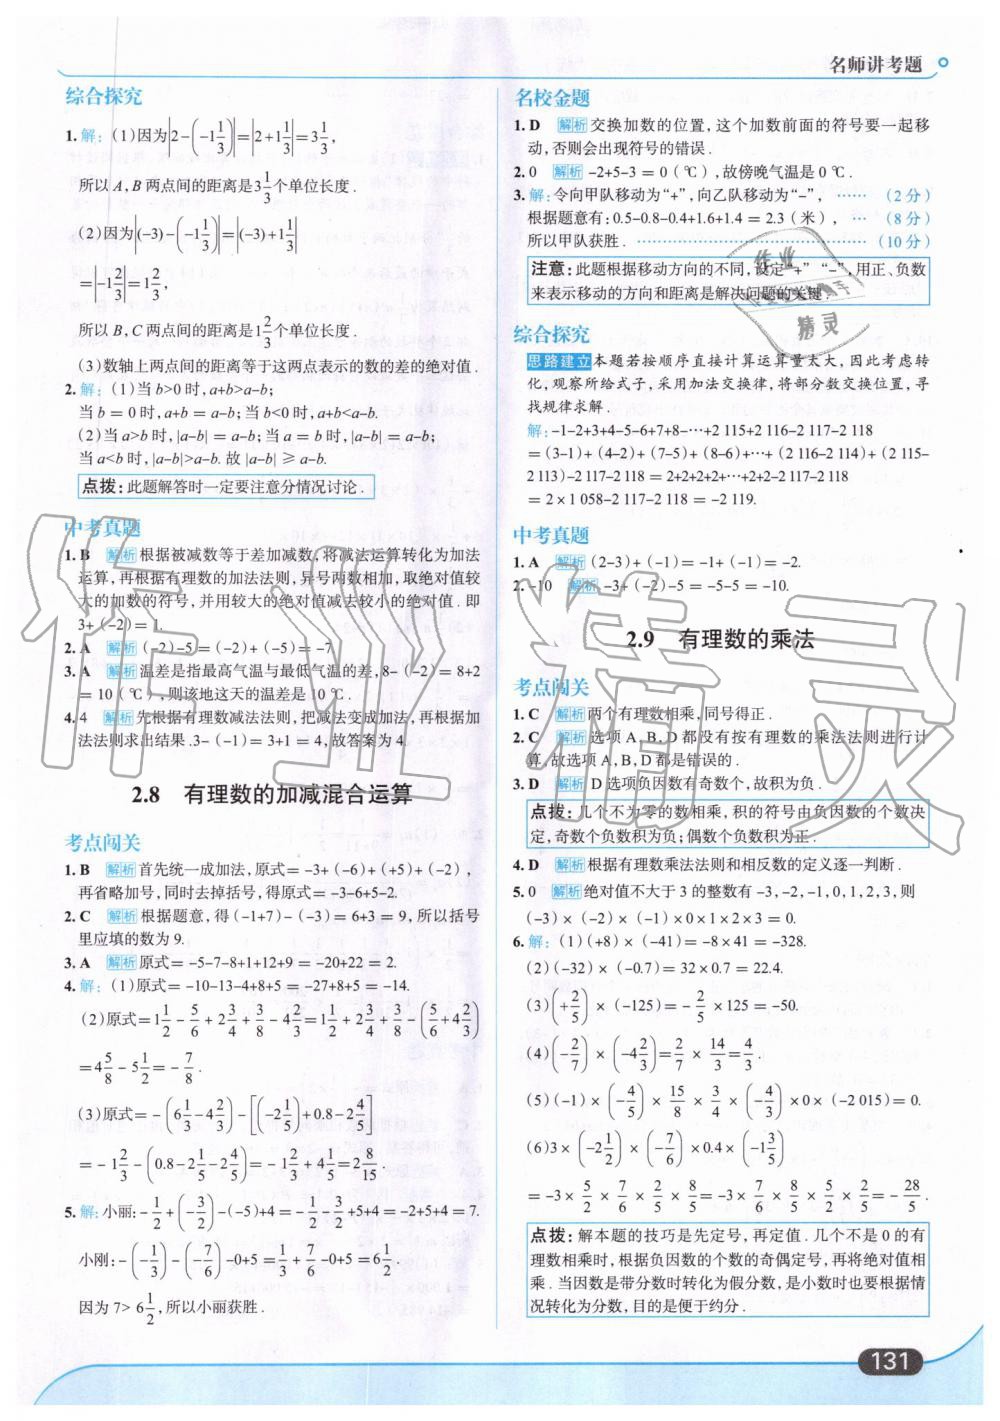 名师讲考题
综合探究
1.解:(1)因为|2-(-1 1/3)|=|2+1 1/3|=3 1/3,
所以A,B两点间的距离是3 1/3个单位长度.
(2)因为|(-3)-(-1 1/3)|=|(-3)+1 1/3|
=|-1 2/3|=1 2/3,
所以B,C两点间的距离是1 2/3个单位长度.
(3)数轴上两点间的距离等于这两点表示的数的差的绝对值.
2.解:(1)当b>0时,a+b>a-b;
当b=0时,a+b=a-b;当b<0时,a+b<a-b.
(2)当a>b时,|a-b|=a-b;当a=b时,|a-b|=a-b;
当a<b时,|a-b|>a-b.故|a-b|≥a-b.
点拨:此题解答时一定要注意分情况讨论.
中考真题
1.B 解析 根据被减数等于差加减数,将减法运算转化为加法
运算,再根据有理数的加法法则,异号两数相加,取绝对值较
大的加数的符号,并用较大的绝对值减去较小的绝对值.即
3+(-2)=1.
2.A 解析 (-2)-5=(-2)+(-5)=-7.
3.A 解析 温差是指最高气温与最低气温的差,8-(-2)=8+2
=10(℃),则该地这天的温差是10℃.
4.4 解析 先根据有理数减法法则,把减法变成加法,再根据加
法法则求出结果.3-(-1)=3+1=4,故答案为4.
2.8 有理数的加减混合运算
考点闯关
1.B 解析 首先统一成加法,原式=-3+(-6)+(+5)+(-2),
再省略加号,同时去掉括号,得原式=-3-6+5-2.
2.C 解析 根据题意,得(-1+7)-(-3)=6+3=9,所以括号
里应填的数为9.
3.A 解析 原式=-5-7-8+1+12+9=-20+22=2.
4.解:(1)原式=-10-13-4+8+5=-27+8+5=-14.
(2)原式=1 1/2-5/6+2 3/4+3/8-4 2/3=1 1/2+2 3/4+3/8-(5/6+4 2/3)
=4 5/8-5 1/2=-7/8.
(3)原式=-(6 1/3-4 2/3)-[(-2 1/5)+0.8-2 4/5]
=-1 2/3-(0.8-2 1/5-2 4/5)=-1 2/3+4 1/5=2 8/15.
5.解:小丽:-1/2+(-3/2)-(-5)+4=-1/2-3/2+5+4=-2+5+4=7.
小刚:-(-1/3)-(-7/6)-0+5=1/3+7/6-0+5=6 1/2
因为7>6 1/2,所以小丽获胜.
名校金题
1.D 解析 交换加数的位置,这个加数前面的符号要一起移
动,否则会出现符号的错误.
2.0 解析 -2+5-3=0(℃),故傍晚气温是0℃.
3.解:令向甲队移动为“+”,向乙队移动为“-”, ……(2分)
根据题意有:0.5-0.8-0.4+1.6+1.4=2.3(米), …(8分)
所以甲队获胜. ……………………………………(10分)
注意:此题根据移动方向的不同,设定“+”“-”,用正、负数
来表示移动的方向和距离是解决问题的关键.
综合探究
思路建立 本题若按顺序直接计算运算量太大,因此考虑转
化,观察所给式子,采用加法交换律,将部分数交换位置,寻
找规律求解.
解:-1-2+3+4-5-6+7+8-…+2 115+2 116-2 117-2 118
=(3-1)+(4-2)+(7-5)+(8-6)+…+(2 116-2 114)+(2 115-
2 113)-2 117-2 118=2+2+2+2+…+2+2-2 117-2 118
=2×1 058-2 117-2 118=-2 119.
中考真题
1.A 解析 (2-3)+(-1)=-1+(-1)=-2.
2.-10 解析 -3+(-2)-5=-5-5=-10.
2.9 有理数的乘法
考点闯关
1.C 解析 两个有理数相乘,同号得正.
2.C 解析 选项A,B,D都没有按有理数的乘法法则进行计
算,故选项A,B,D都是错误的.
3.D 解析 D选项负因数有奇数个,故积为负.
点拨:几个不为零的数相乘,积的符号由负因数的个数决
定,奇数个负数积为负;偶数个负数积为正.
4.D 解析 根据有理数乘法法则和相反数的定义逐一判断.
5.0 解析 绝对值不大于3的整数有-3,-2,-1,0,1,2,3,则
(-3)×(-2)×(-1)×0×1×2×3=0.
6.解:(1)(+8)×(-41)=-8×41=-328.
(2)(-32)×(-0.7)=32×0.7=22.4.
(3)(+2/5)×(-125)=-2/5×125=-50.
(4)(-2/7)×(-4 2/3)=2/7×14/3=4/3.
(5)(-1)×(-4/5)×15/8×3/4×(-4/3)×0×(-2 015)=0.
(6)3×(-2 1/2)×(-7/6)×0.4×(-1 3/5)
=-3×5/2×7/6×2/5×8/5=-3×7/6×5/2×2/5×8/5=-28/5.
点拨:解本题的技巧是先定号,再定值.几个不是0的有
理数相乘时,根据负因数的个数的奇偶定号,再将绝对值相
乘.当因数是带分数时转化为假分数,是小数时也要根据情
况转化为分数,目的是便于约分.
131
作业精灵